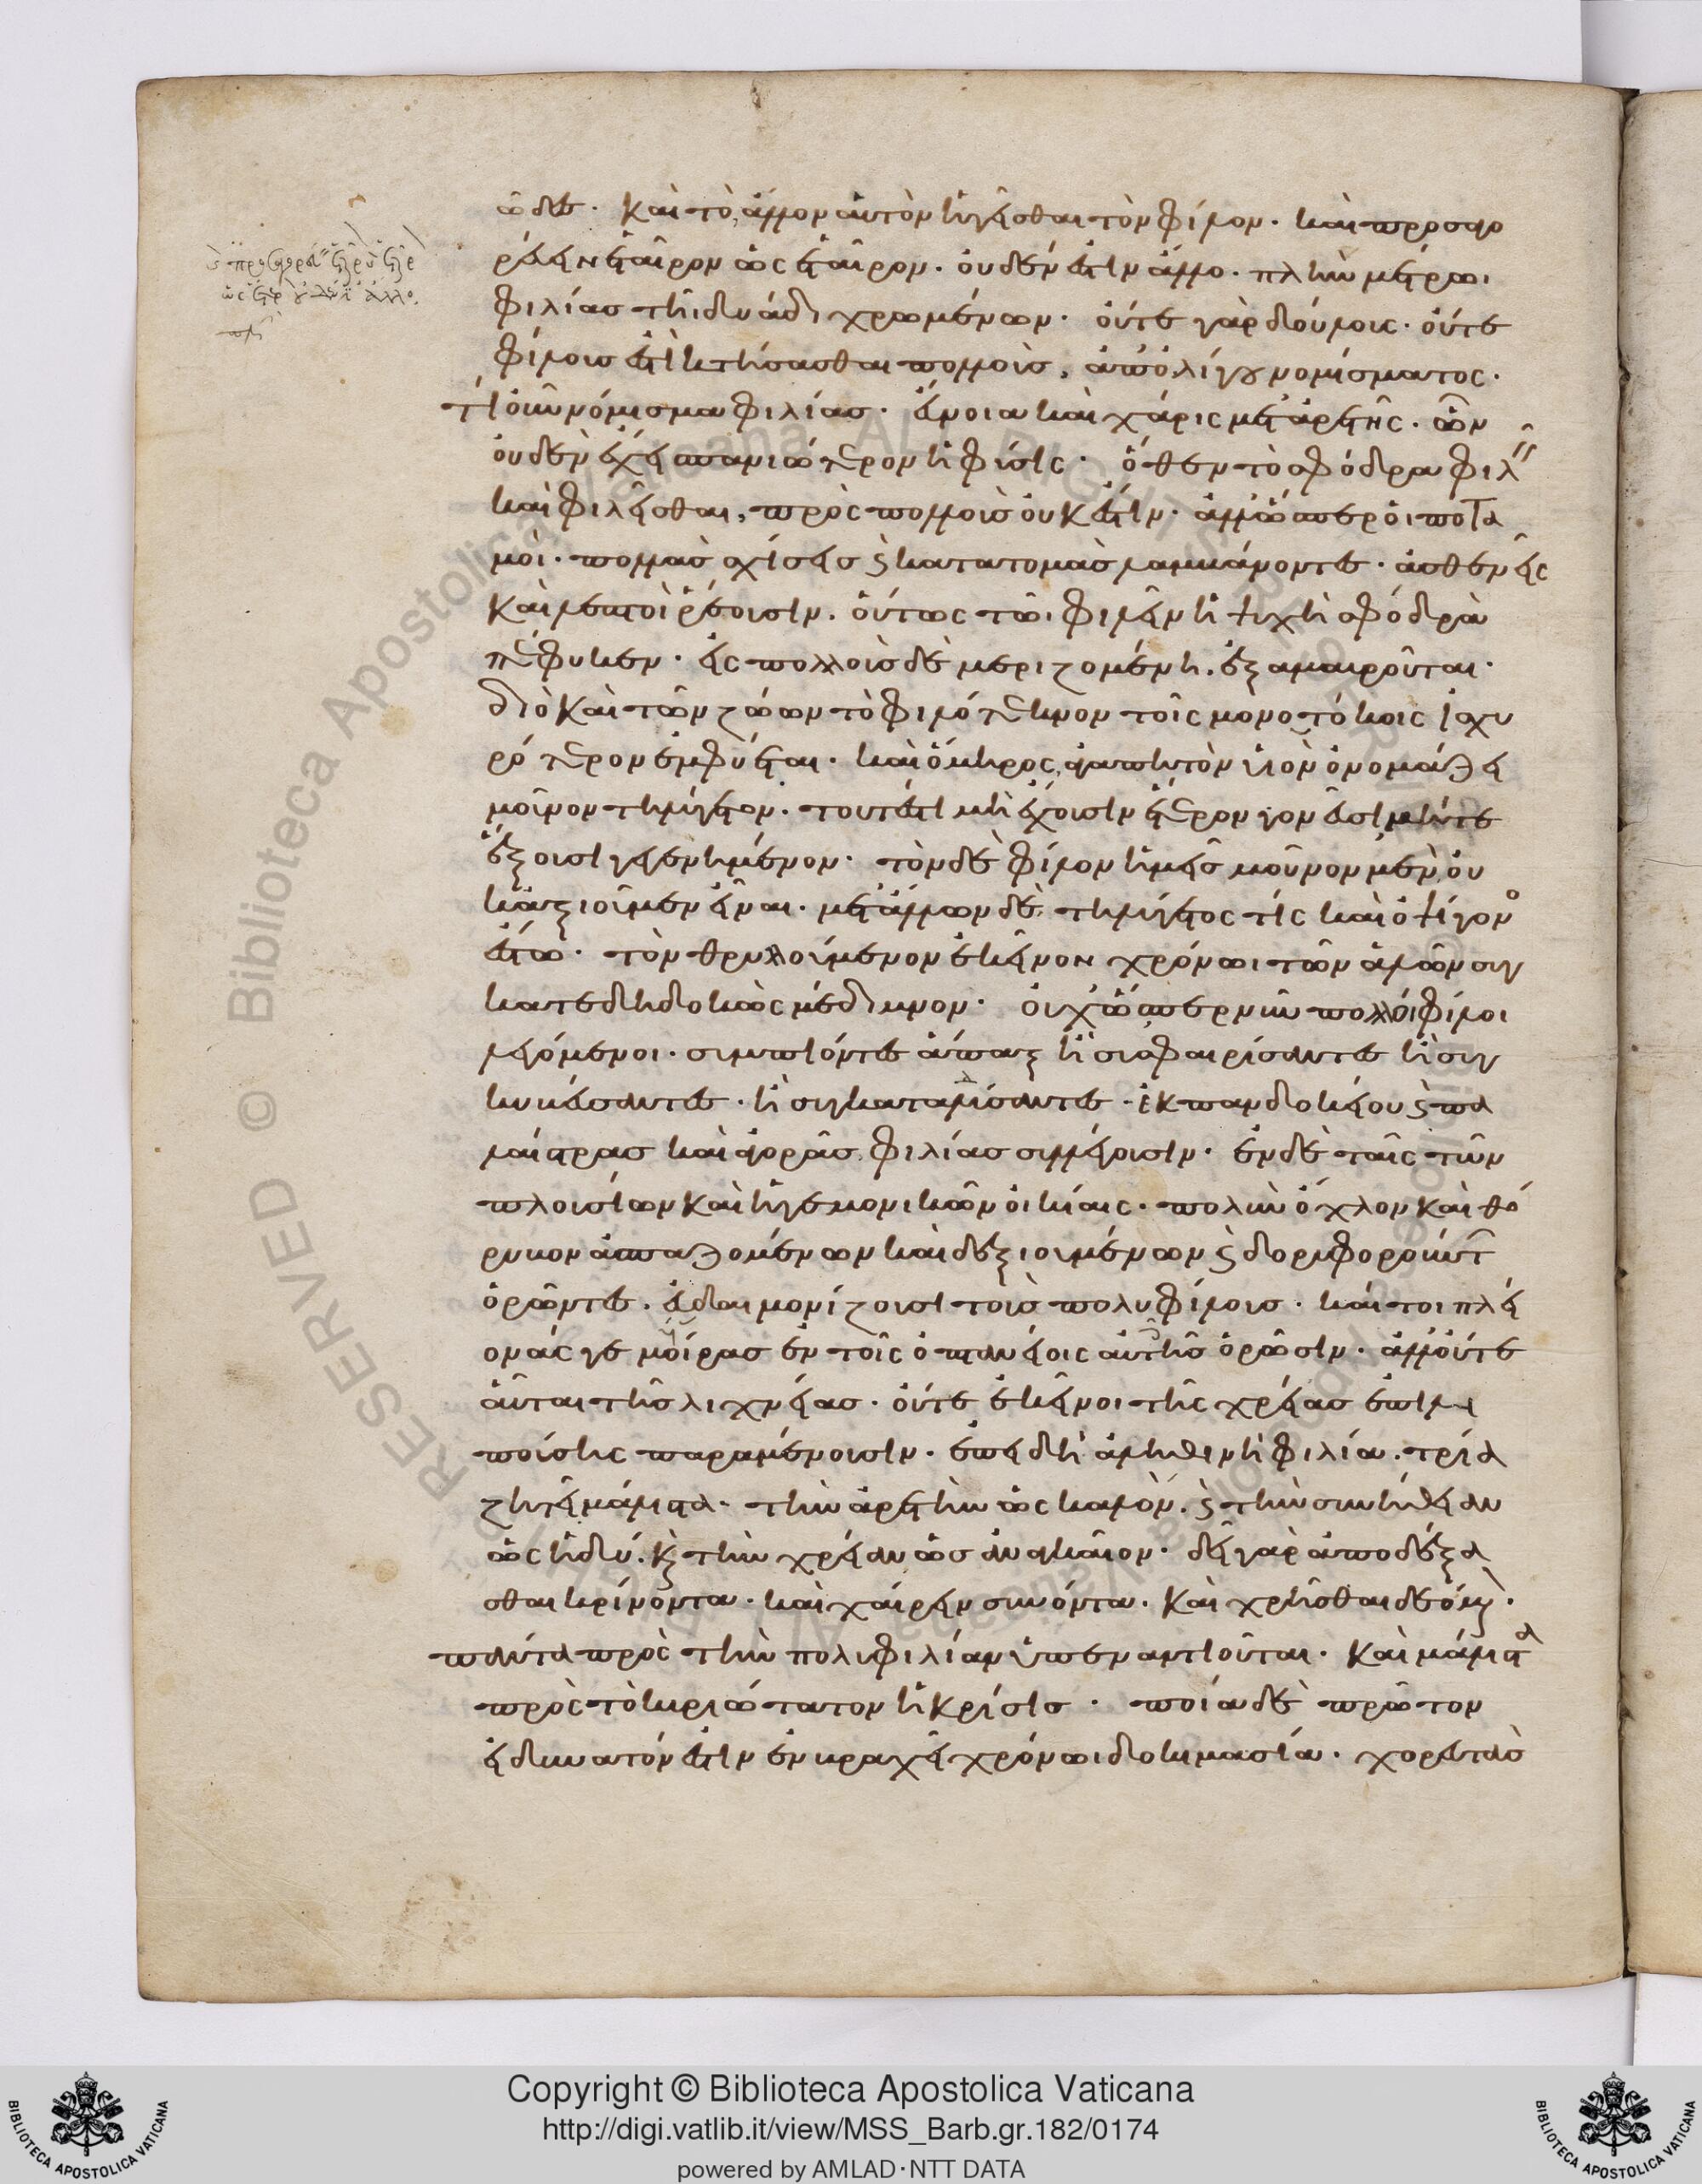 ὧδε. καὶ τὸ ἄλλον αὑτὸν ἡγεῖσθαι τὸν φίλον. καὶ προσαγο
ρεύειν ἑταῖρον ὡς ἑταῖρον. οὐδέν ἐστιν ἄλλο. πλὴν μέτρωι
φιλίας τῆι δυάδι χρωμένων. οὔτε γὰρ δούλους. οὔτε
φίλους ἐστὶ κτήσασθαι πολλοὺς, ἀπὸ ὀλίγου νομίσματος.
τί οὖν νόμισμα φιλίας. εὔνοια καὶ χάρις μετ' ἀρετῆς. ὧν
οὐδὲν ἔχει σπανιώτερον ἡ φύσις. ὅθεν τὸ σφόδρα φιλεῖν
καὶ φιλεῖσθαι, πρὸς πολλοὺς οὐκ ἔστιν. ἀλλ' ὥσπερ οἱ ποτα
μοὶ. πολλὰς σχίσεις καὶ κατατομὰς λαμβάνοντες. ἀσθενεῖς
καὶ λεπτοὶ ῥέουσιν. οὕτως τῶι φιλεῖν ἡ ψυχὴ σφόδρα
πέφυκεν. εἰς πολλοὺς δὲ μεριζομένη. ἐξαμαυροῦται.
διὸ καὶ τῶν ζώων τὸ φιλότεκνον τοῖς μονοτόκοις ἰσχυ
ρότερον ἐμφύεται. καὶ ὅμηρος, ἀγαπητὸν υἱὸν ὀνομάζει
μοῦνον τηλύγετον. τουτέστι μὴ ἔχουσιν ἕτερον γονεῦσι μήτε
ἕξουσι γεγενημένον. τὸν δὲ φίλον ἡμεῖς μοῦνον μὲν οὐ
κ ἀξιοῦμεν εἶναι. μετ' ἄλλων δὲ τηλύγετος τίς καὶ ὀψίγονος
ἔστω. τὸν θρυλλούμενον ἐκεῖνον χρόνωι τῶν ἁλῶν συγ
κατεδηδοκὼς μέδιμνον. οὐχ ὥσπερ νῦν πολλοὶ φίλοι
λεγόμενοι. συμπιόντες ἅπαξ ἢ συσφαιρίσαντες ἢ συγ
κυβεύσαντες. ἢ συγκαταλύσαντες. ἐκ πανδοκείου καὶ πα
λαίστρας καὶ ἀγορᾶς, φιλίας συλλέγουσιν. ἐν δὲ ταῖς τῶν
πλουσίων καὶ ἡγεμονικῶν οἰκίαις. πολὺν ὄχλον καὶ θό
ρυβον ἀσπαζομένων καὶ δεξιουμένων καὶ δορυφορούντων
ὁρῶντες. εὐδαιμονίζουσι τοὺς πολυφίλους. καίτοι πλεί
ονάς γε μυίας ἐν τοῖς ὀπτανείοις αὐτῆς ὁρῶσιν. ἀλλ' οὔτε
αὗται τῆς λιχνείας. οὔτε ἐκεῖνοι τῆς χρείας ἐπιλει
πούσης παραμένουσιν. ἐπεὶ δὴ ἀληθινὴ φιλία. τρία
ζητεῖ μάλιστα. τὴν ἀρετὴν ὡς καλὸν. καὶ τὴν συνήθειαν
ὡς ἡδύ. καὶ τὴν χρείαν ὡς ἀναγκαῖον. δεῖ γὰρ ἀποδέξα
σθαι κρίνοντα. καὶ χαίρειν συνόντα. καὶ χρῆσθαι δεόμενον.
πάντα πρὸς τὴν πολυφιλίαν ὑπεναντιοῦται. καὶ μάλιστα
πρὸς τὸ κυριώτατον ἡ κρίσις. ποία δὲ πρῶτον
εἰ δυνατόν ἐστιν ἐν βραχεῖ χρόνωι δοκιμασία. χορευτὰς
Copyright © Biblioteca Apostolica Vaticana
http://digi.vatlib.it/view/MSS_Barb.gr.182/0174
powered by AMLAD·NTT DATA